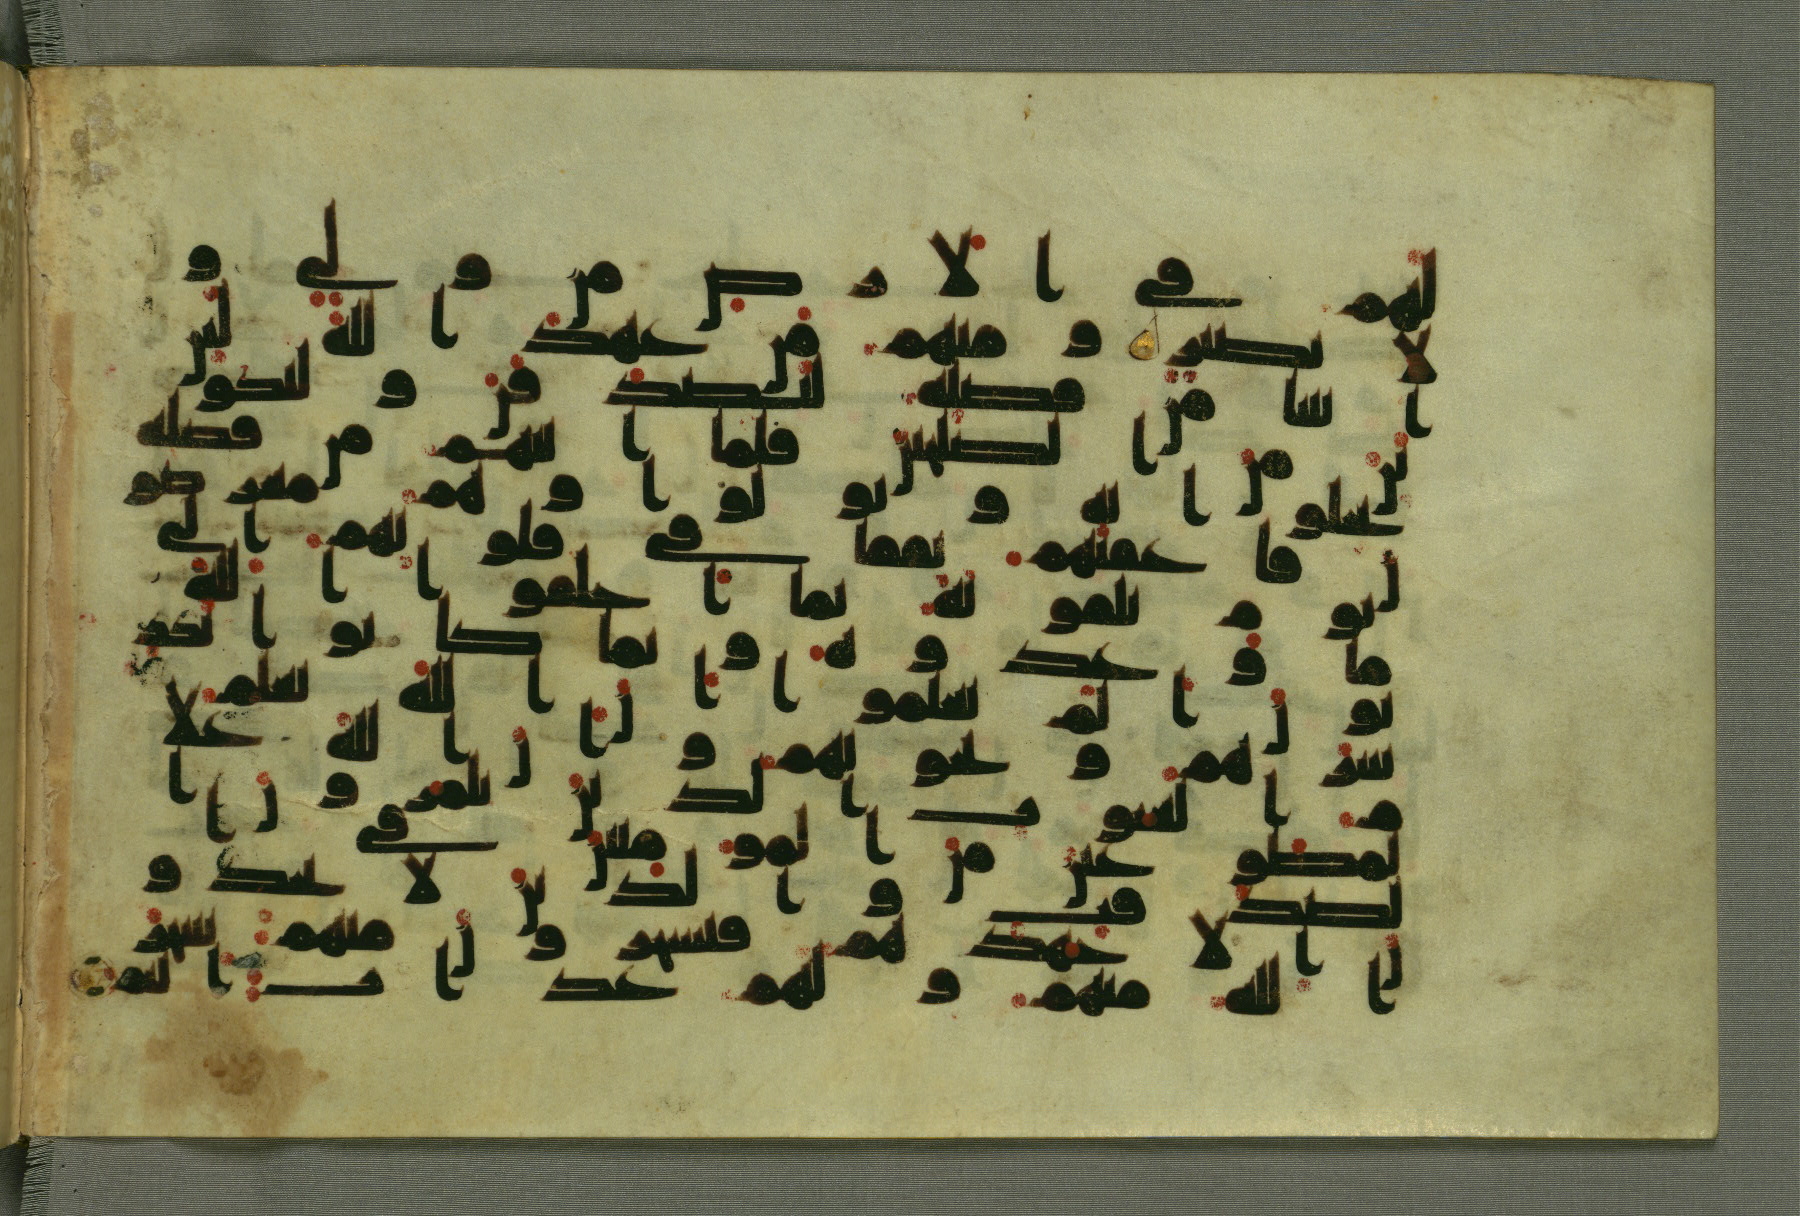 لهم في الارض من ولي و
لا نصير ومنهم من عهد الله لئن
اتينا من فضله لنصدقن ولنكو
نن من الصلحين فلما اتيهم من فضله
بخلوا به وتولوا وهم معرضو
ن فاعقبهم نفاقا في قلوبهم الى
يوم يلقونه بما اخلفوا الله
ما وعدوه وبما كانوا يكذ
بون الم يعلموا ان الله يعلم
سرهم ونجويهم وان الله علا
م الغيوب الذين يلمزون ا
لمطوعين من المومنين في ا
لصدقت والذين لا يجدو
ن الا جهدهم فيسخرون منهم سخر
الله منهم ولهم عذاب اليم